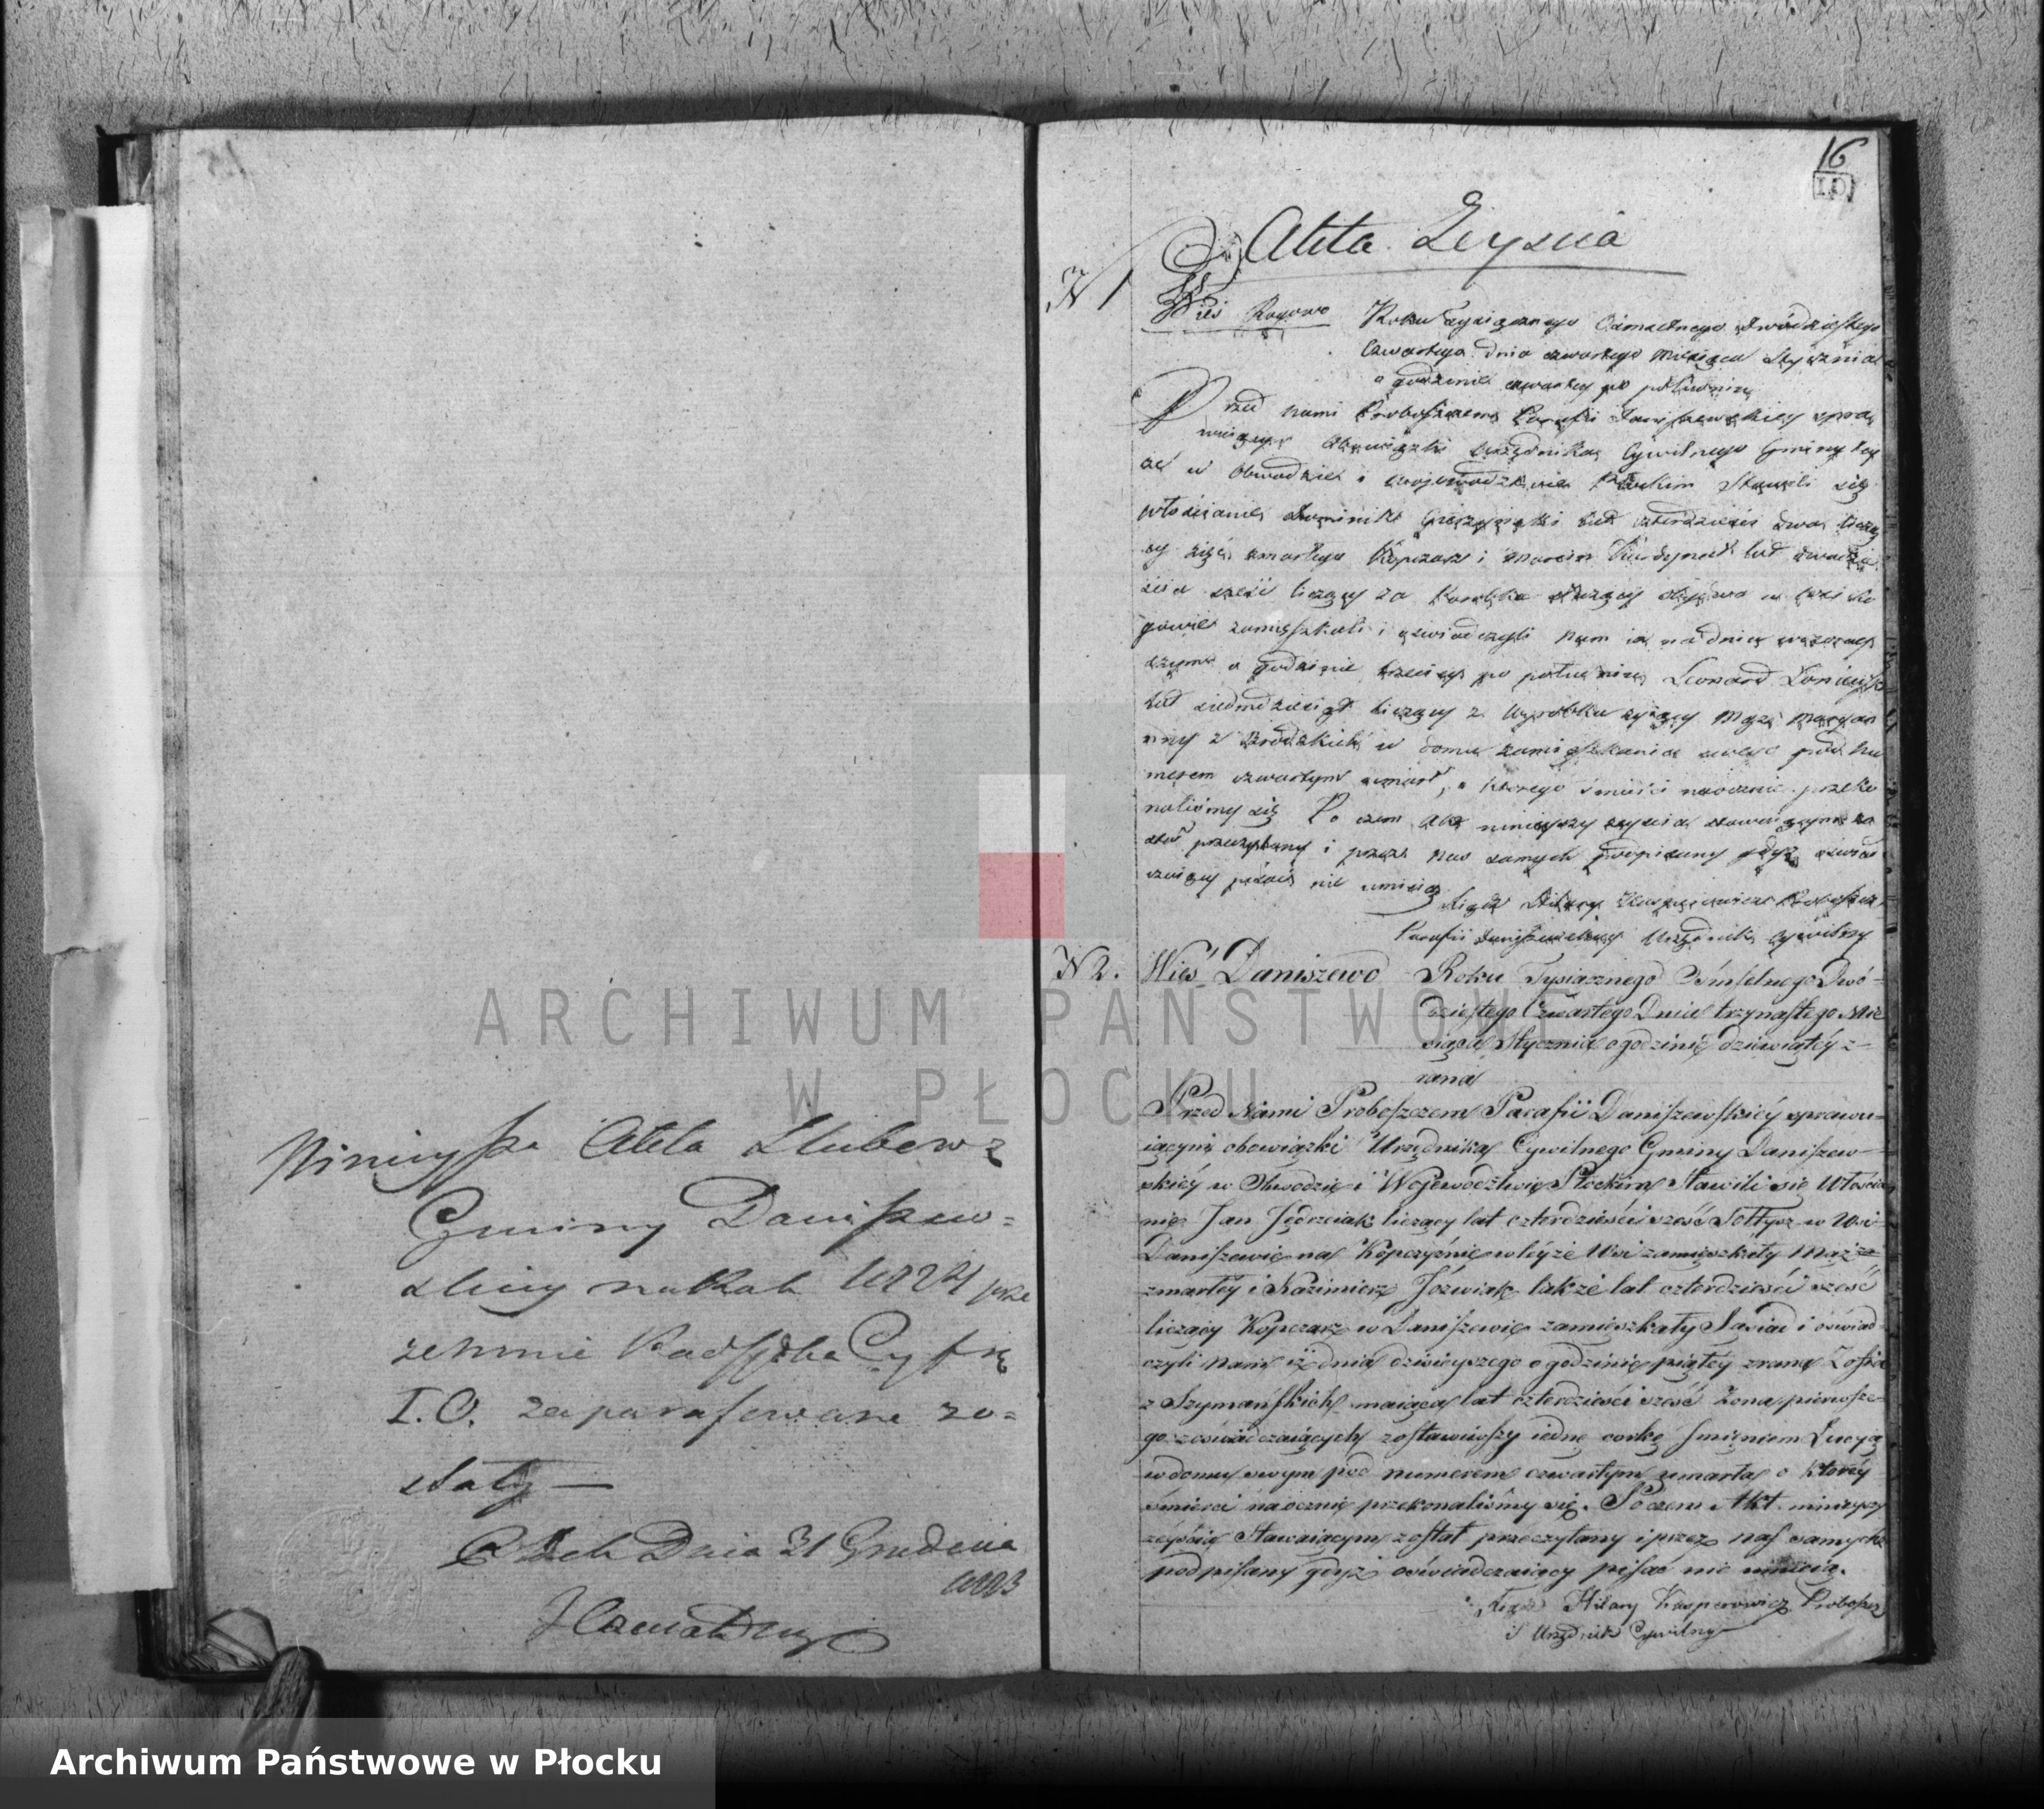 Akta
Gminy Daniszew=
skiey na Rok 1824 prze
zemnie Cyfrą
I.O. zaparafowane zo=
stały —
Dnia 31 Grudnia
1823
16
I.O.
Akta Zeyscia
N 1
Wieś Rogowo Roku Tysiącznego Osmsetnego dwódziestego
czwartego dnia czwartego Miesiąca Stycznia
o godzinie czwartey po południu
Przed nami Proboszczem Parafii Daniszewskiey spra
wuiącym obowiązki urzędnika Cywilnego Gminy tey
że w Obwodzie i wojewodztwie Płockim Stawili się
włościanie Dominik lat czterdzieści dwa licząc
y zięć zmarłego Kopczarz i Marcin lat dwadzie
ścia sześć liczący za Parobka służący obydwa w wsi Ro
gowie zamieszkali i oświadczyli nam iż na dniu wczoray
szym o godzinie trzeciey po południu Leonard
lat siedmdziesiąt liczący z wyrobku żyiący Mąż Maryan
nny z w domu zamieszkania swego pod nu
merem czwartym umarł, o którego śmierci naocznie przeko
naliśmy się Po czem Akt ninieyszy zeyscia stawaiącym zo
stał przeczytany i przez nas samych podpisany gdyż oświad
czaiący pisać nie umieią
Xiądz Hilary Kasperowicz Proboszcz
Parafii Daniszewskiey Urzędnik Cywilny
N 2. Wieś Daniszewo Roku Tysiącznego Osmsetnego Dwó-
dziestego Czwartego Dnia trzynastego Mie
siąca Stycznia o godzinie dziewiątey z-
rana
Przed Nami Proboszczem Parafii Daniszewskiey sprawu-
iącym obowiązki Urzędnika Cywilnego Gminy Daniszew-
skiéy w Obwodzie i Województwie Płockim Stawili się Włościa
nie Jan Jędrzeiak liczący lat czterdzieści sześć Sołtys w Wsi
Daniszewie na Kopczyźnie w teyże Wsi zamieszkały Mąż
zmartéy i Kazimierz Józwiak także lat czterdzieści sześć
liczący Kopczarz w Daniszewie zamieszkały Sąsiad i oświad-
czyli nam iż dnia dzisieyszego o godzinie piątéy zrana Zofia
z Szymańskich maiąca lat czterdzieści sześć Żona pierwsze-
go z oświadczaiących zostawiwszy iednę corkę Imieniem Łucyą
w domu swym pod numerem czwartym umarła o któréy
śmierci naocznie przekonaliśmy się. Poczem Akt ninieyszy
zeyścia Stawaiącym został przeczytany i przez nas samych
podpisany gdyż oświadczaiący pisać nie umieią.
Xiądz Hilary Kasperowicz Proboszcz
i Urzędnik Cywilny
ARCHIWUM PAŃSTWOWE
W PŁOCKU
Archiwum Państwowe w Płocku